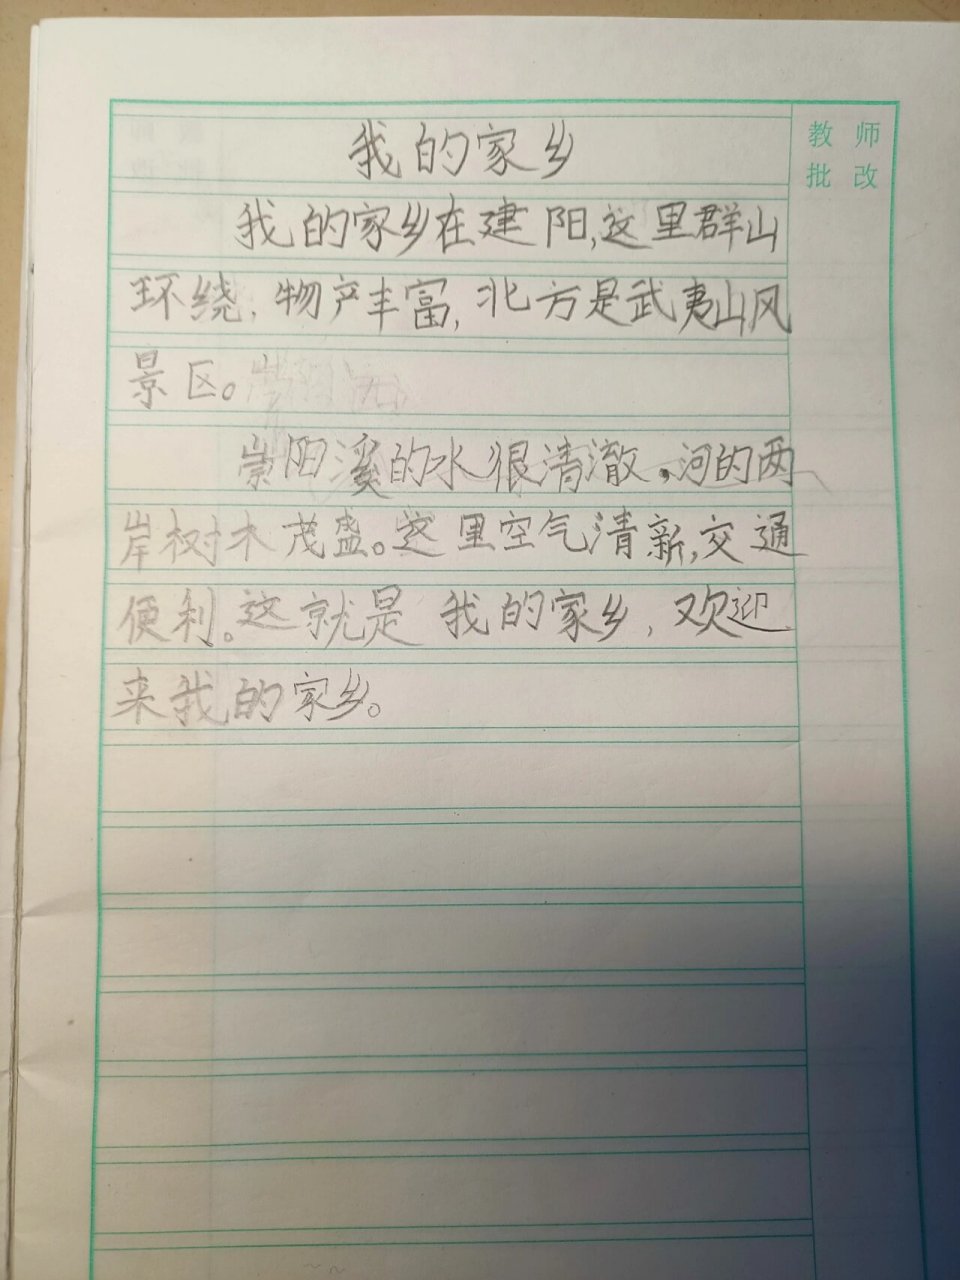 我的家乡
教师
批改
我的家乡在建阳,这里群山
环绕,物产丰富,北方是武夷山风
景区。
崇阳溪的水很清澈,河的两
岸树木茂盛。这里空气清新,交通
便利。这就是我的家乡,欢迎
来我的家乡。